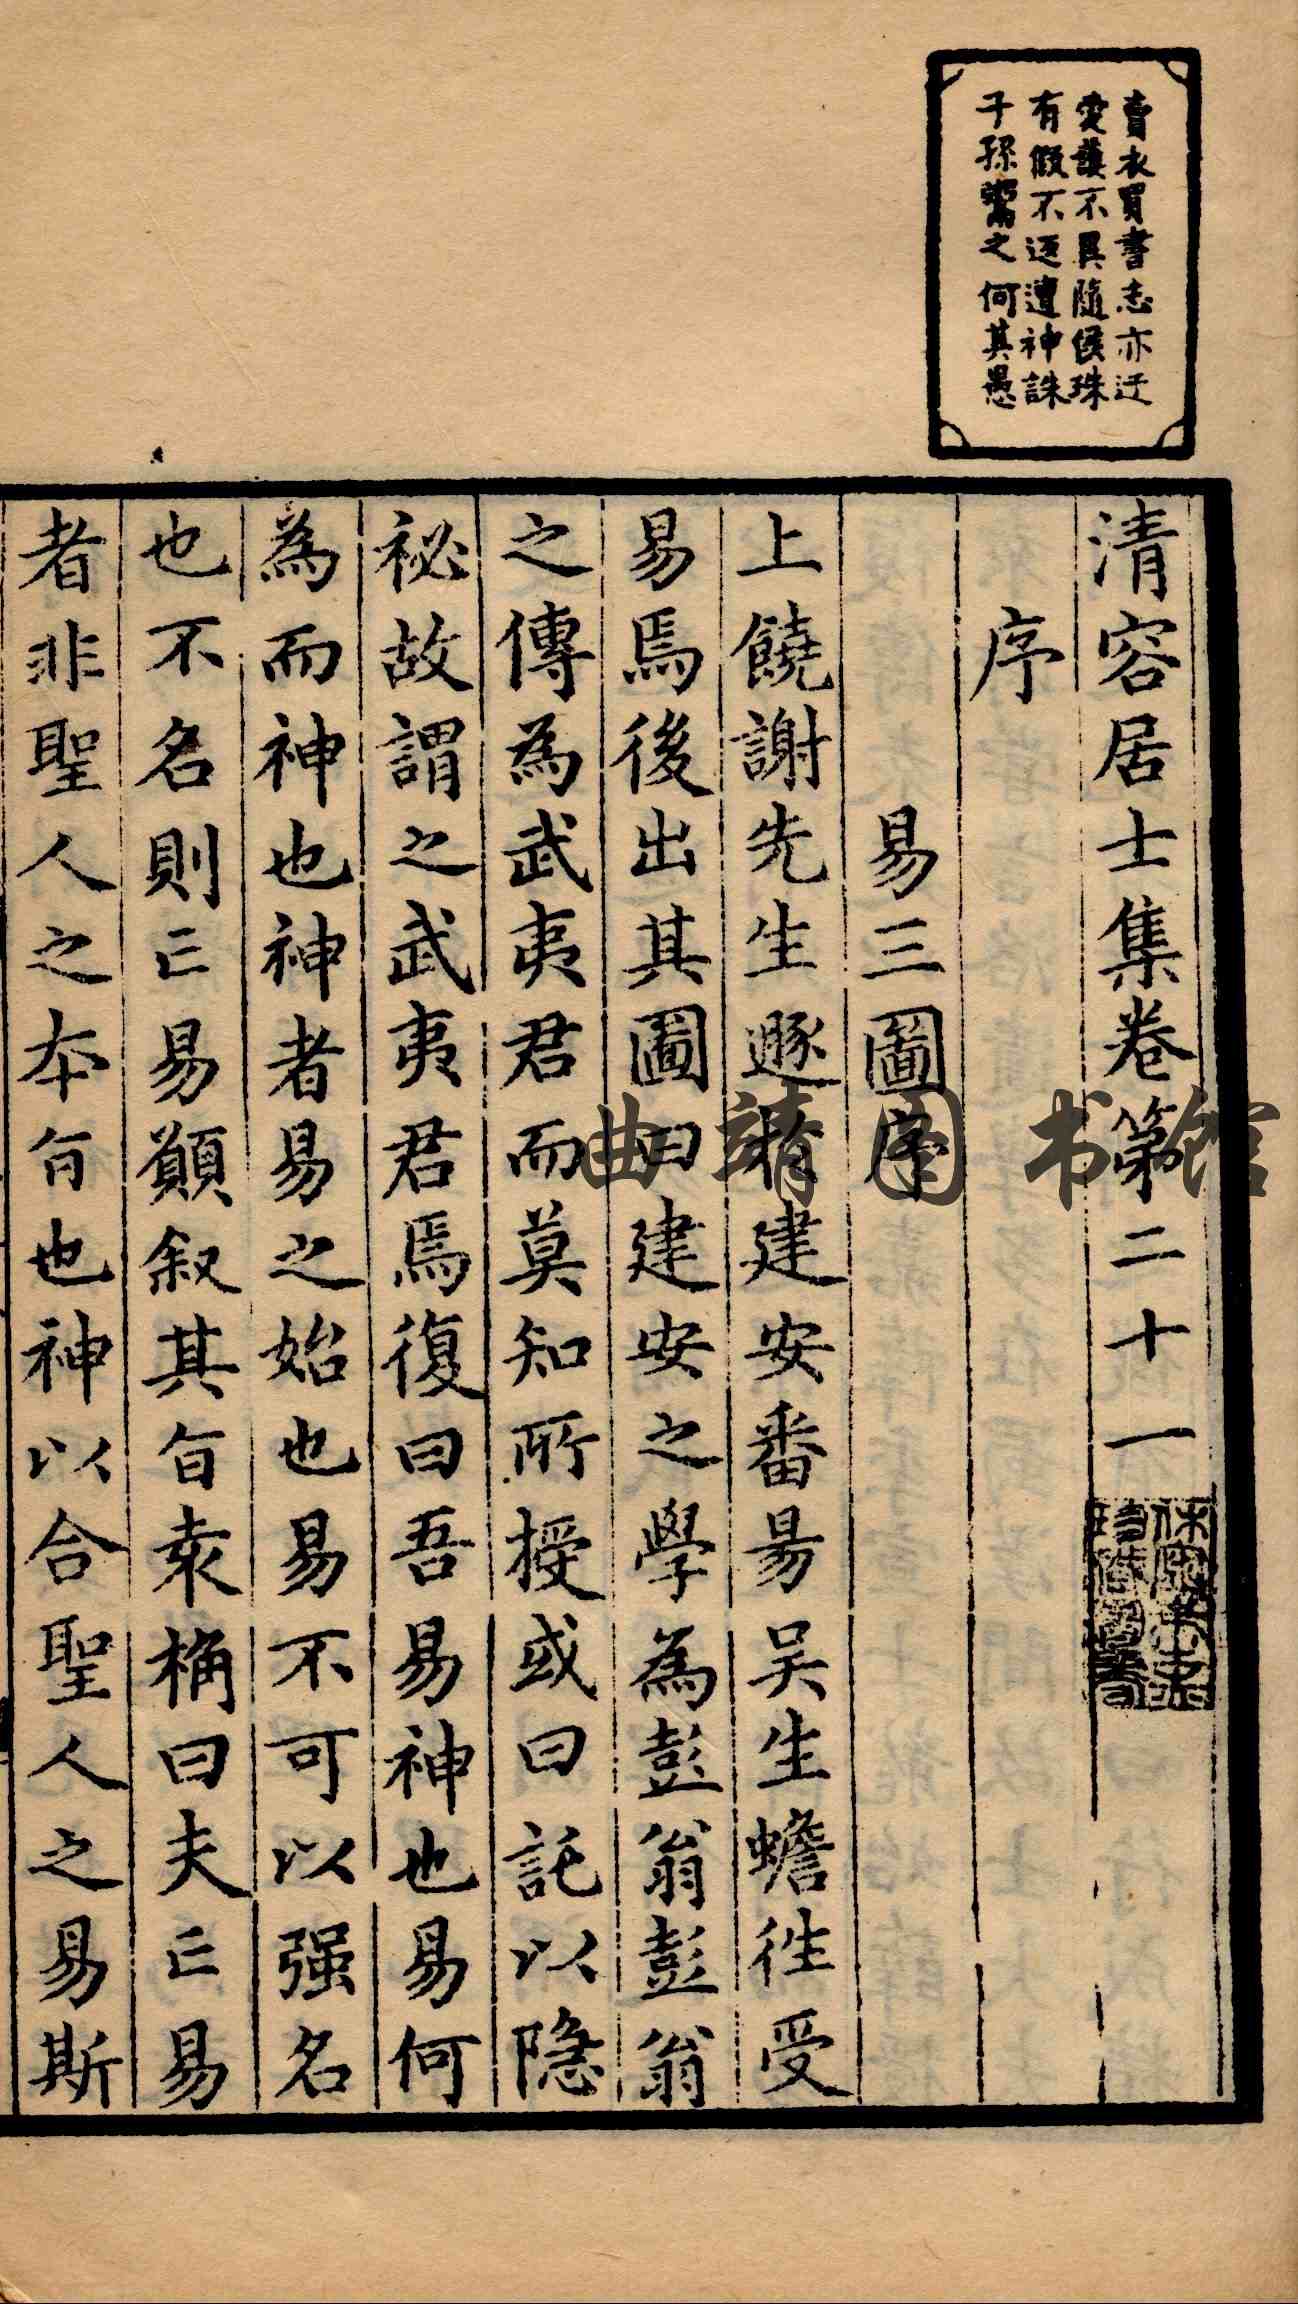 賣衣買書志亦迂
愛護不異隨侯珠
有假不返遭神誅
子孫鬻之何其愚
清容居士集卷第二十一
序
易三圖序
上饒謝先生遯於建安番昜吴生蟾徃受
易焉後出其圖曰建安之學為彭翁彭翁
之傳為武夷君而莫知所授或曰託以隐
祕故謂之武夷君焉復曰吾易神也易何
為而神也神者易之始也易不可以强名
也不名則亡易願叙其旨袁桷曰夫亡易
者非聖人之本旨也神以合聖人之易斯
曲靖图书馆